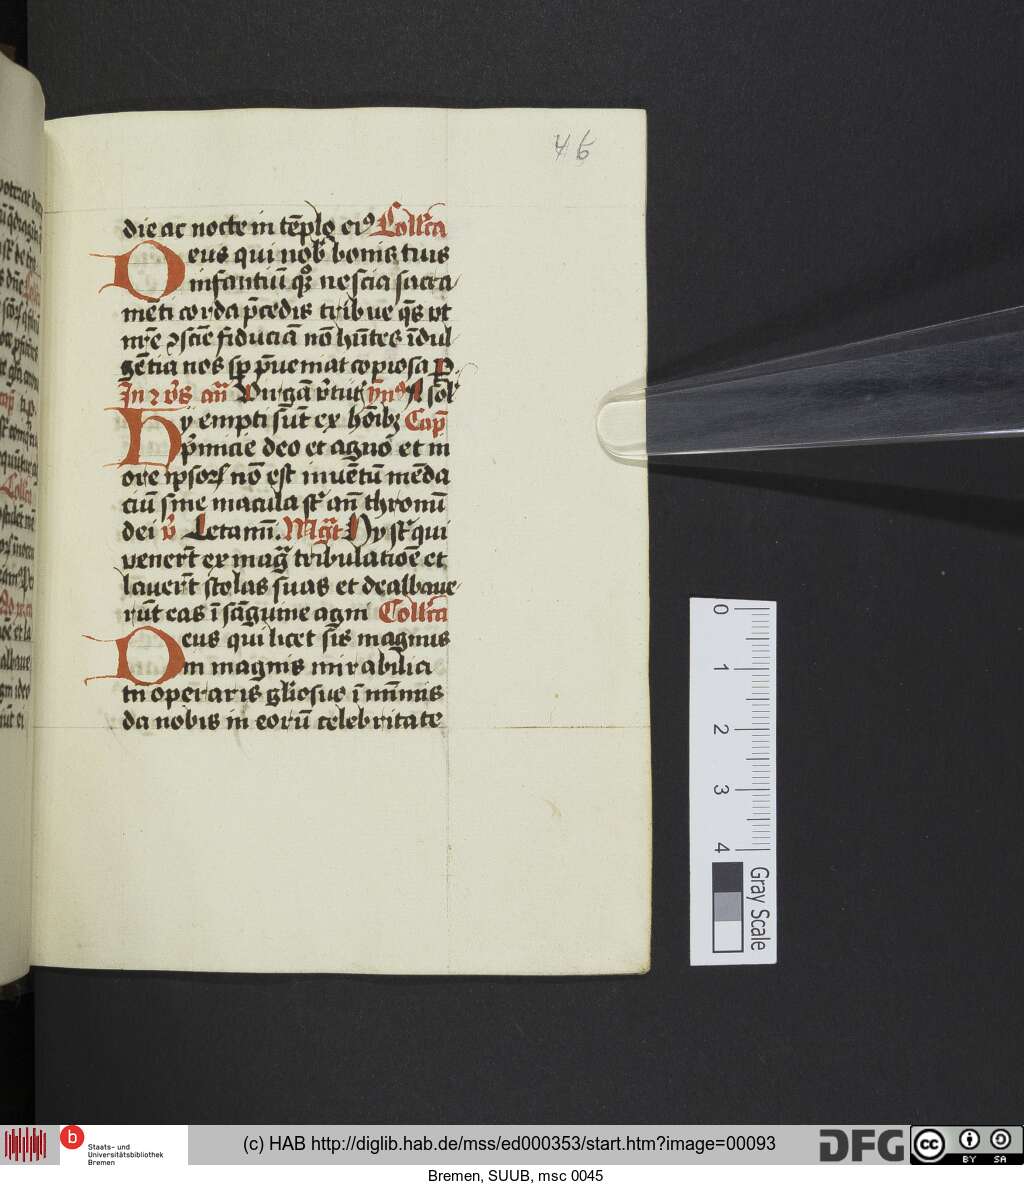 46
die ac nocte in te̅plo eiꝰ Coll̅cta
Deus qui nob̅ bonis tuis
infantiu̅ qꝫ nescia sacra
me̅ti corda p̅cedis tribue q̅s vt
nr̅e ↄscie̅ fiducia̅ no̅ hn̅tes i̅dul
ge̅tia nos sp̅ p̅ueniat copiosa P.
In 2 vs̅ an̅ Virga̅ v̅tut̅ ymꝰ A sol̅
Hy empti su̅t ex ho̅ibꝫ Cap̅
p̅micie deo et agno̅ et in
ore ipsoꝝ no̅ est inue̅tu̅ me̅da
ciu̅ sine macula st̅ an̅ thronu̅
dei v̅ Letamī. Mag̅t Hy st̅ qui
venert̅ ex mag̅ tribulatio̅e et
lauert̅ stolas suas et dealbaue
ru̅t eas i̅ sa̅guine agni Coll̅cta
Deus qui licet sis̅ magnus
in magnis mirabilia
tn̅ operaris gl̅iosius i̅ mi̅mis
da nobis in eoru̅ celebritate
0 1 2 3 4
Gray Scale
b
Staats- und
Universitätsbibliothek
Bremen
(c) HAB http://diglib.hab.de/mss/ed000353/start.htm?image=00093
DFG
cc BY SA
Bremen, SUUB, msc 0045